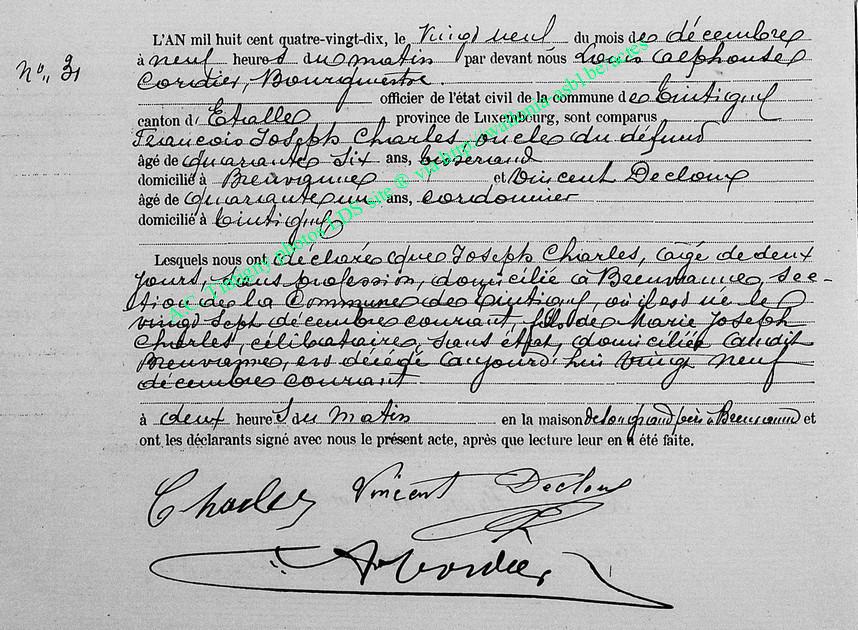 L'AN mil huit cent quatre-vingt-dix, le Vingt neuf du mois de décembre
N° 31 à neuf heures du matin par devant nous Louis Alphonse
Cordier, Bourgmestre
officier de l'état civil de la commune de Tintigny
canton d'Etalle province de Luxembourg, sont comparus
Francois Joseph Charles, oncle du défunt
âgé de quarante six ans, tisserand
domicilié à Breuvanne et Vincent Decloux
âgé de quarante un ans, cordonnier
domicilié à Tintigny
Lesquels nous ont déclaré que Joseph Charles, âgé de deux
jours, sans profession, domicilié à Breuvanne, sec-
tion de la Commune de Tintigny, où il est né le
vingt sept décembre courant, fils de Marie Joseph
Charles, célibataire, sans état, domiciliée audit
Breuvanne, est décédé aujourd'hui vingt neuf
décembre courant
à deux heures du matin en la maison de son grand père à Breuvanne et
ont les déclarants signé avec nous le présent acte, après que lecture leur en a été faite.
Charles Vincent Decloux
A Cordier
A.C. Tintigny photos LDS site ® via http://wallonia-asbl.be/actes